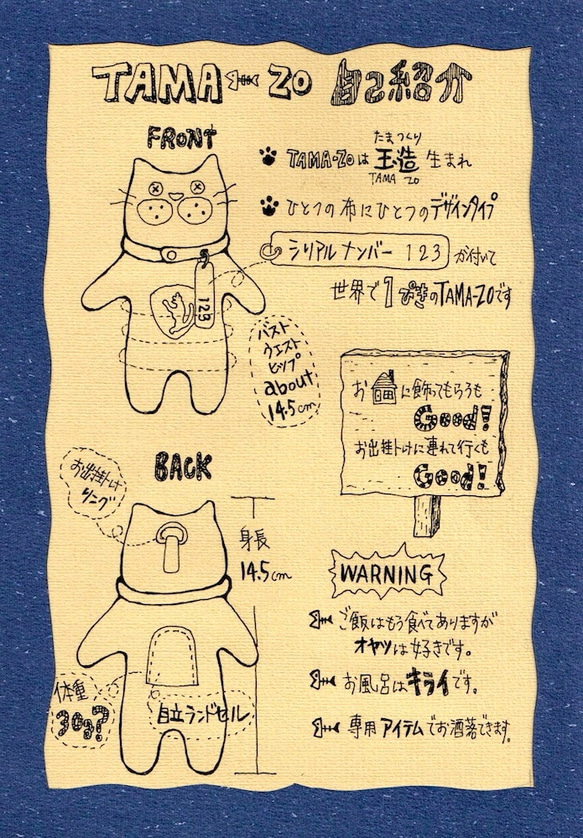 TAMA ZO 自己紹介
FRONT
たまつくり
TAMA-ZOは 玉造 生まれ
TAMA ZO
ひとつの布にひとつのデザインタイプ
シリアルナンバー 123 が付いて
世界で1ぴきのTAMA-ZOです
123
バスト
ウエスト
ヒップ
about
14.5cm
お に飾ってもらうも
Good!
お出掛けに連れて行くも
Good!
BACK
お出掛け
リング
身長
14.5cm
体重
30g?
自立ランドセル
WARNING
ご飯はもう食べてありますが
オヤツは好きです。
お風呂はキライです。
専用アイテムでお洒落できます。